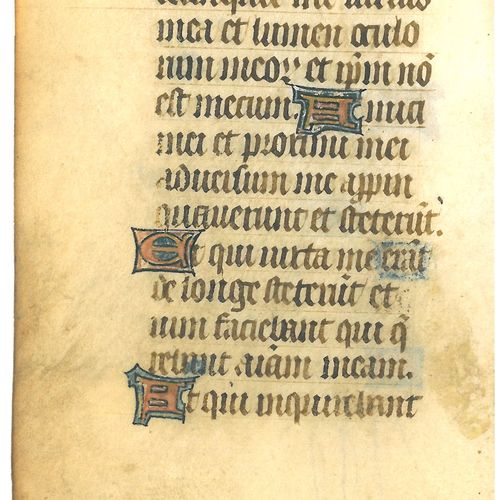 me uirtus
mea et lumen oculo
rum meoꝝ et ip̄m nō
est mecum. Amici
mei et proximi mei
aduersum me appin
quauerunt et steterūt.
Et qui iuxta me erāt
de longe steterūt et
uim faciebant qui q̄
rebant aīam meam.
Et qui inquirebant